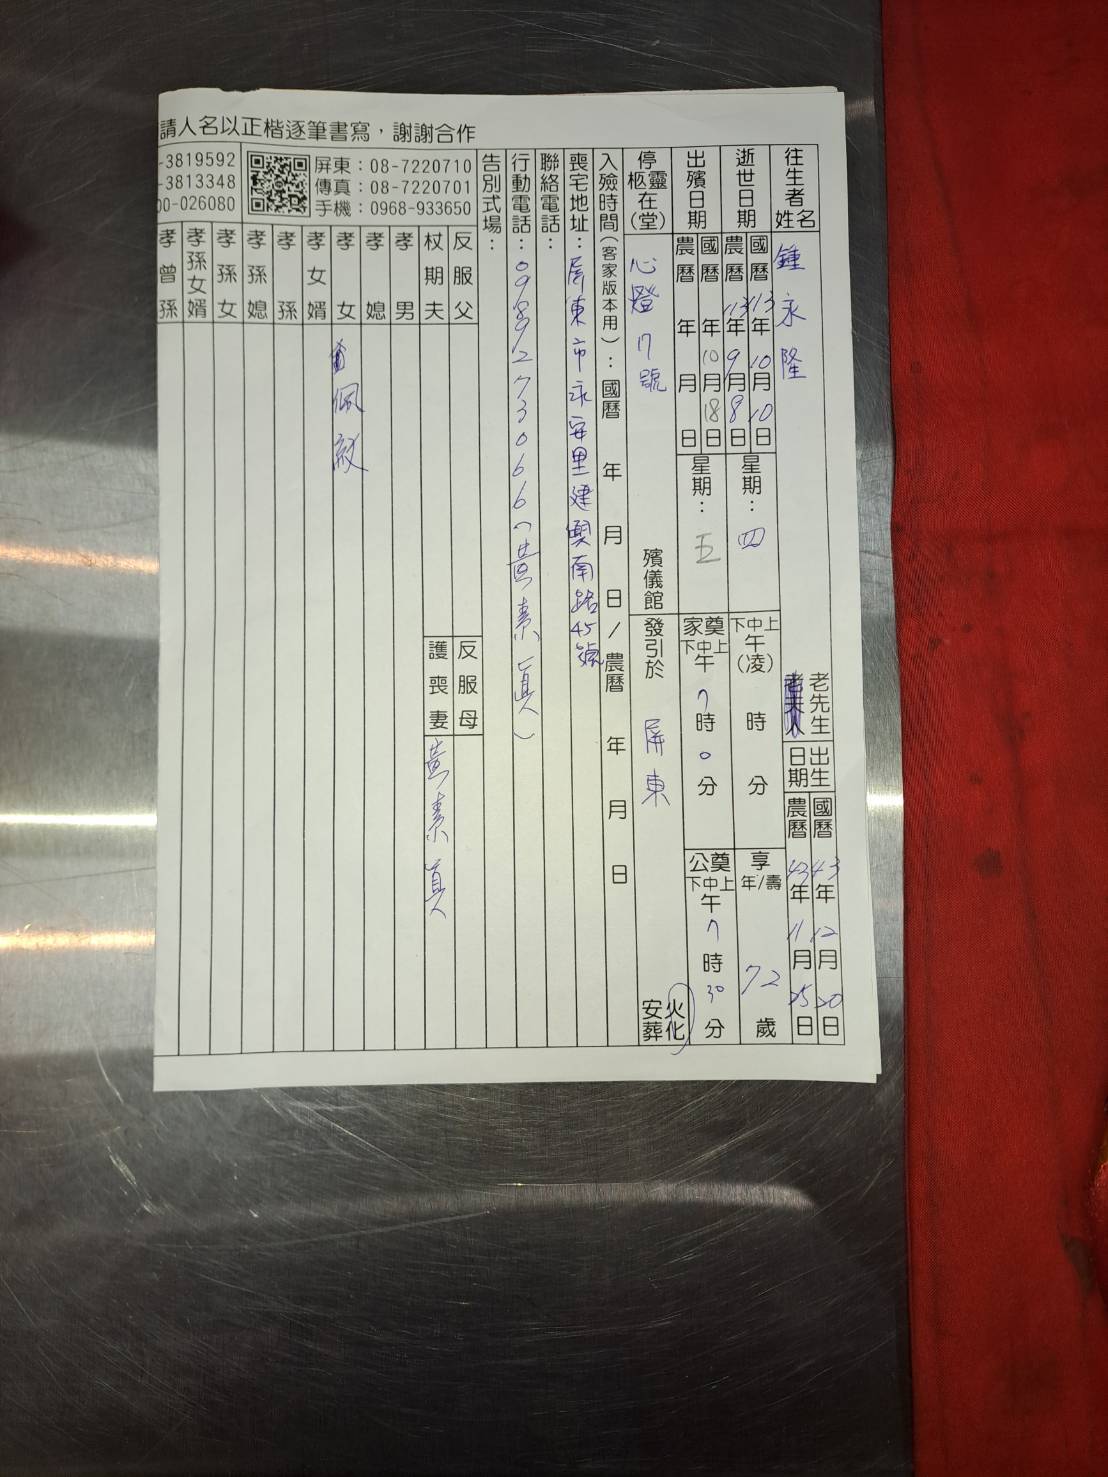 請人名以正楷逐筆書寫，謝謝合作
往生者姓名 鍾永隆 老先生 出生日期 國曆 43年12月20日 農曆 43年11月25日
逝世日期 國曆 113年10月10日 農曆 113年9月8日 星期：四 下中上午(凌) 時 分 享年/壽 72歲
出殯日期 國曆 年10月18日 農曆 年 月 日 星期：五 家奠 下中上午 7時0分 公奠 下中上午 7時30分
停柩靈在(堂) 心燈7號 殯儀館 發引於 屏東 火化 安葬
入殮時間(客家版本用)：國曆 年 月 日/農曆 年 月 日
喪宅地址：屏東市永安里建興南路45號
聯絡電話：
行動電話：0989273066(黃素真)
告別式場：
屏東：08-7220710
傳真：08-7220701
手機：0968-933650
-3819592
-3813348
00-026080
反服父 反服母
杖期夫 護喪妻 黃素真
孝男
孝媳
孝女 佩紋
孝女婿
孝孫
孝孫媳
孝孫女
孝孫女婿
孝曾孫